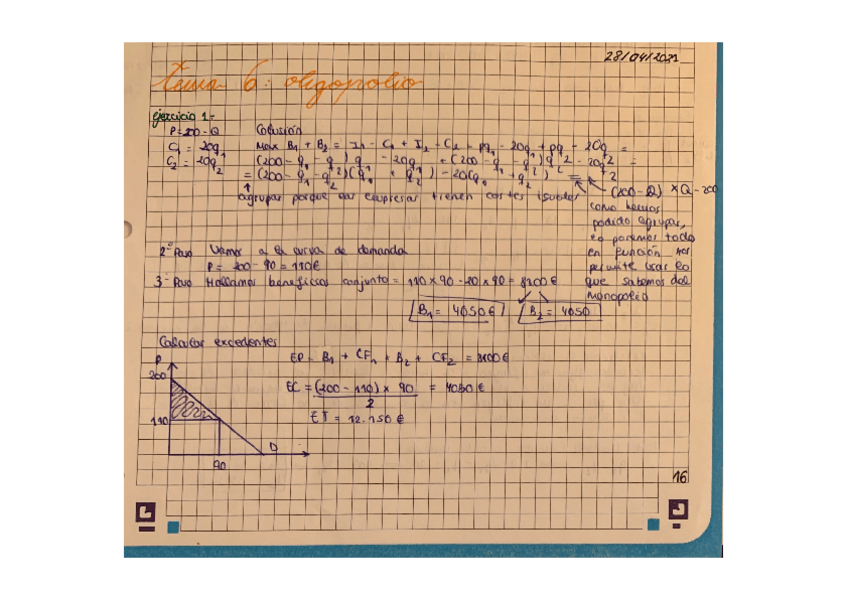 28/04/2021
Tema 6: oligopolio
ejercicio 1-
P=200-Q Colusión
C1 = 20q1 Max B1 + B2 = I1 - C1 + I2 - C2 = pq1 - 20q1 + pq2 - 20q2 =
C2 = 20q2 (200 - q1 - q2) q1 - 20q1 + (200 - q1 - q2) q2 - 20q2 =
= (200 - q1 - q2)(q1 + q2) - 20(q1 + q2) =
(200 - Q) × Q - 20Q
agrupar porque las empresas tienen costes iguales
como hemos
podido agrupar,
lo ponemos todo
en función nos
permite usar lo
que sabemos del
monopolio
2º Paso Vamos a la curva de demanda
P = 200 - 90 = 110€
3º Paso Hallamos beneficios conjunto = 110 x 90 - 20 x 90 = 8100 €
B1 = 4050 € B2 = 4050
Calcular excedentes
EP = B1 + CF1 + B2 + CF2 = 8100 €
EC = (200 - 110) x 90 / 2 = 4050 €
ET = 12.150 €
P
200
110
90
D
16